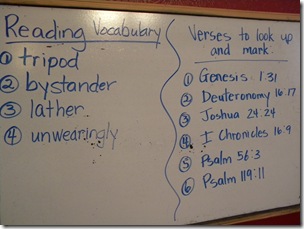 Reading Vocabulary
① tripod
② bystander
③ lather
④ unwearingly
Verses to look up
and mark.
① Genesis 1:31
② Deuteronomy 16:17
③ Joshua 24:24
④ I Chronicles 16:9
⑤ Psalm 56:3
⑥ Psalm 119:11